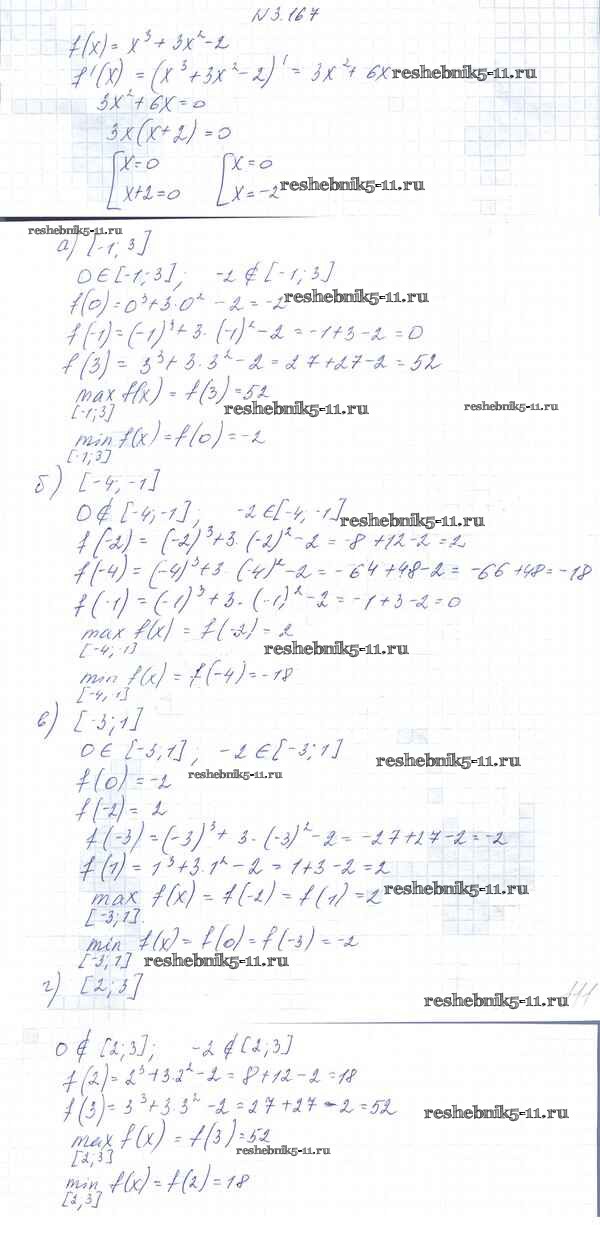 N3.167
f(x) = x³ + 3x² - 2
f'(x) = (x³ + 3x² - 2)' = 3x² + 6x reshebnik5-11.ru
3x² + 6x = 0
3x(x + 2) = 0
[x = 0 [x = 0
[x + 2 = 0 [x = -2 reshebnik5-11.ru
reshebnik5-11.ru
а) [-1; 3]
0 ∈ [-1; 3]; -2 ∉ [-1; 3]
f(0) = 0³ + 3·0² - 2 = -2 reshebnik5-11.ru
f(-1) = (-1)³ + 3·(-1)² - 2 = -1 + 3 - 2 = 0
f(3) = 3³ + 3·3² - 2 = 27 + 27 - 2 = 52
max f(x) = f(3) = 52
[-1; 3] reshebnik5-11.ru reshebnik5-11.ru
min f(x) = f(0) = -2
[-1; 3]
б) [-4; -1]
0 ∉ [-4; -1]; -2 ∈ [-4; -1] reshebnik5-11.ru
f(-2) = (-2)³ + 3·(-2)² - 2 = -8 + 12 - 2 = 2
f(-4) = (-4)³ + 3·(-4)² - 2 = -64 + 48 - 2 = -66 + 48 = -18
f(-1) = (-1)³ + 3·(-1)² - 2 = -1 + 3 - 2 = 0
max f(x) = f(-2) = 2
[-4; -1] reshebnik5-11.ru
min f(x) = f(-4) = -18
[-4; -1]
в) [-3; 1]
0 ∈ [-3; 1]; -2 ∈ [-3; 1]
reshebnik5-11.ru
f(0) = -2 reshebnik5-11.ru
f(-2) = 2
f(-3) = (-3)³ + 3·(-3)² - 2 = -27 + 27 - 2 = -2
f(1) = 1³ + 3·1² - 2 = 1 + 3 - 2 = 2
max f(x) = f(-2) = f(1) = 2 reshebnik5-11.ru
[-3; 1]
min f(x) = f(0) = f(-3) = -2
[-3; 1] reshebnik5-11.ru
г) [2; 3]
reshebnik5-11.ru 111
0 ∉ [2; 3]; -2 ∉ [2; 3]
f(2) = 2³ + 3·2² - 2 = 8 + 12 - 2 = 18
f(3) = 3³ + 3·3² - 2 = 27 + 27 - 2 = 52 reshebnik5-11.ru
max f(x) = f(3) = 52
[2; 3] reshebnik5-11.ru
min f(x) = f(2) = 18
[2; 3]